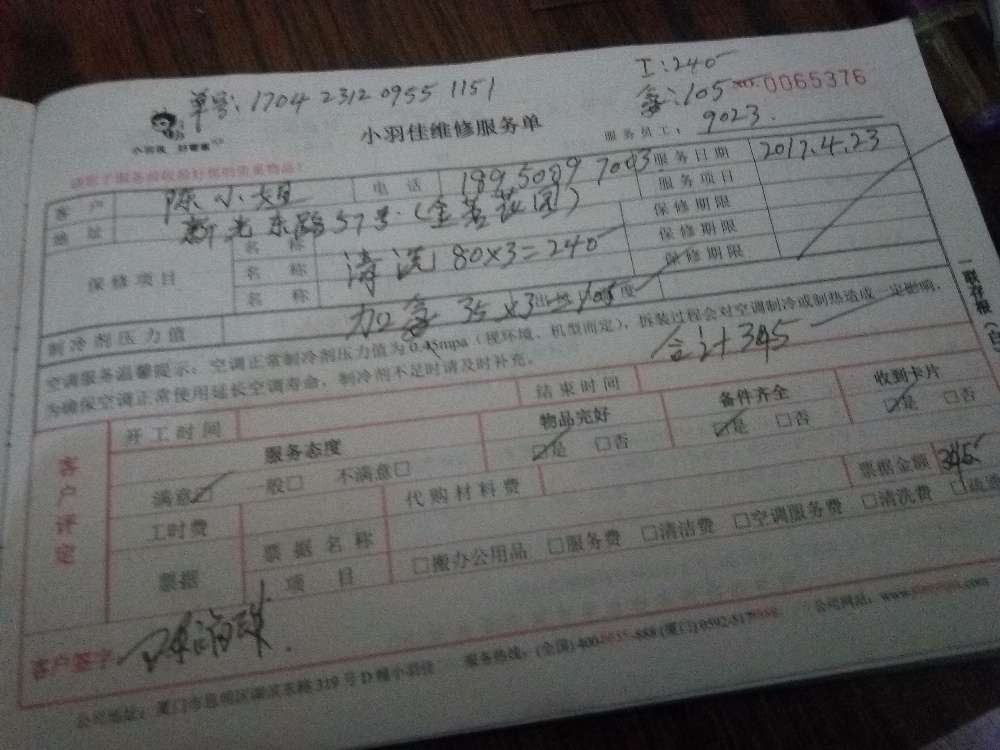 单号: 1704 2312 0955 1151
工: 240
氟: 105 NO. 0065376
小羽佳 好管家
小羽佳维修服务单
服务员工: 9023.
客户 陈小姐 电话 189 5089 7093 服务日期 2017.4.23
地址 新光东路57号 (金茗花园) 服务项目
保修项目
名称 保修期限
名称 清洗 80×3=240 保修期限
名称 保修期限
制冷剂压力值 加氟 35×3 105 度
合计 345
空调服务温馨提示: 空调正常制冷剂压力值为0.45mpa (视环境、机型而定), 拆装过程会对空调制冷或制热造成一定影响,
为确保空调正常使用延长空调寿命, 制冷剂不足时请及时补充。
客户评定
开工时间 结束时间
服务态度 物品完好 备件齐全 收到卡片
满意☑ 一般□ 不满意□ ☑是 □否 ☑是 □否 ☑是 □否
工时费 代购材料费 票据金额 345
票据 票据名称
项目 □搬办公用品 □服务费 □清洁费 □空调服务费 □清洗费
客户签字:
公司地址: 厦门市思明区湖滨东路319号D幢小羽佳 服务热线: (全国) 400 (厦门) 0592-517 公司网站: www.